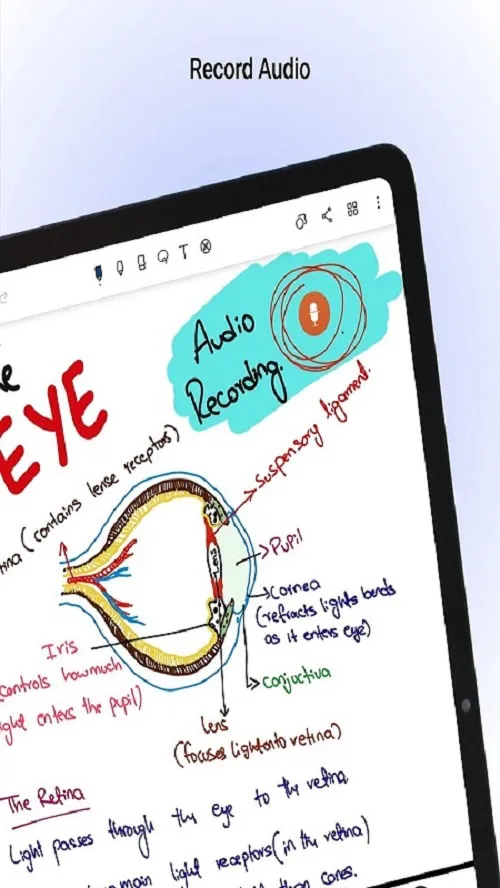 Record Audio
T
Audio
Recording.
EYE
(contains lense receptors)
Suspensory ligament.
Lens
Pupil
Cornea
(refracts lights bends
as it enters eye)
Iris
controls howmuch
light enters the pupil)
conjuctiva
Lens
(focuses lightonto retina)
The Retina
Light passes through the eye to the retina
main light receptors (in the retina)
cones.